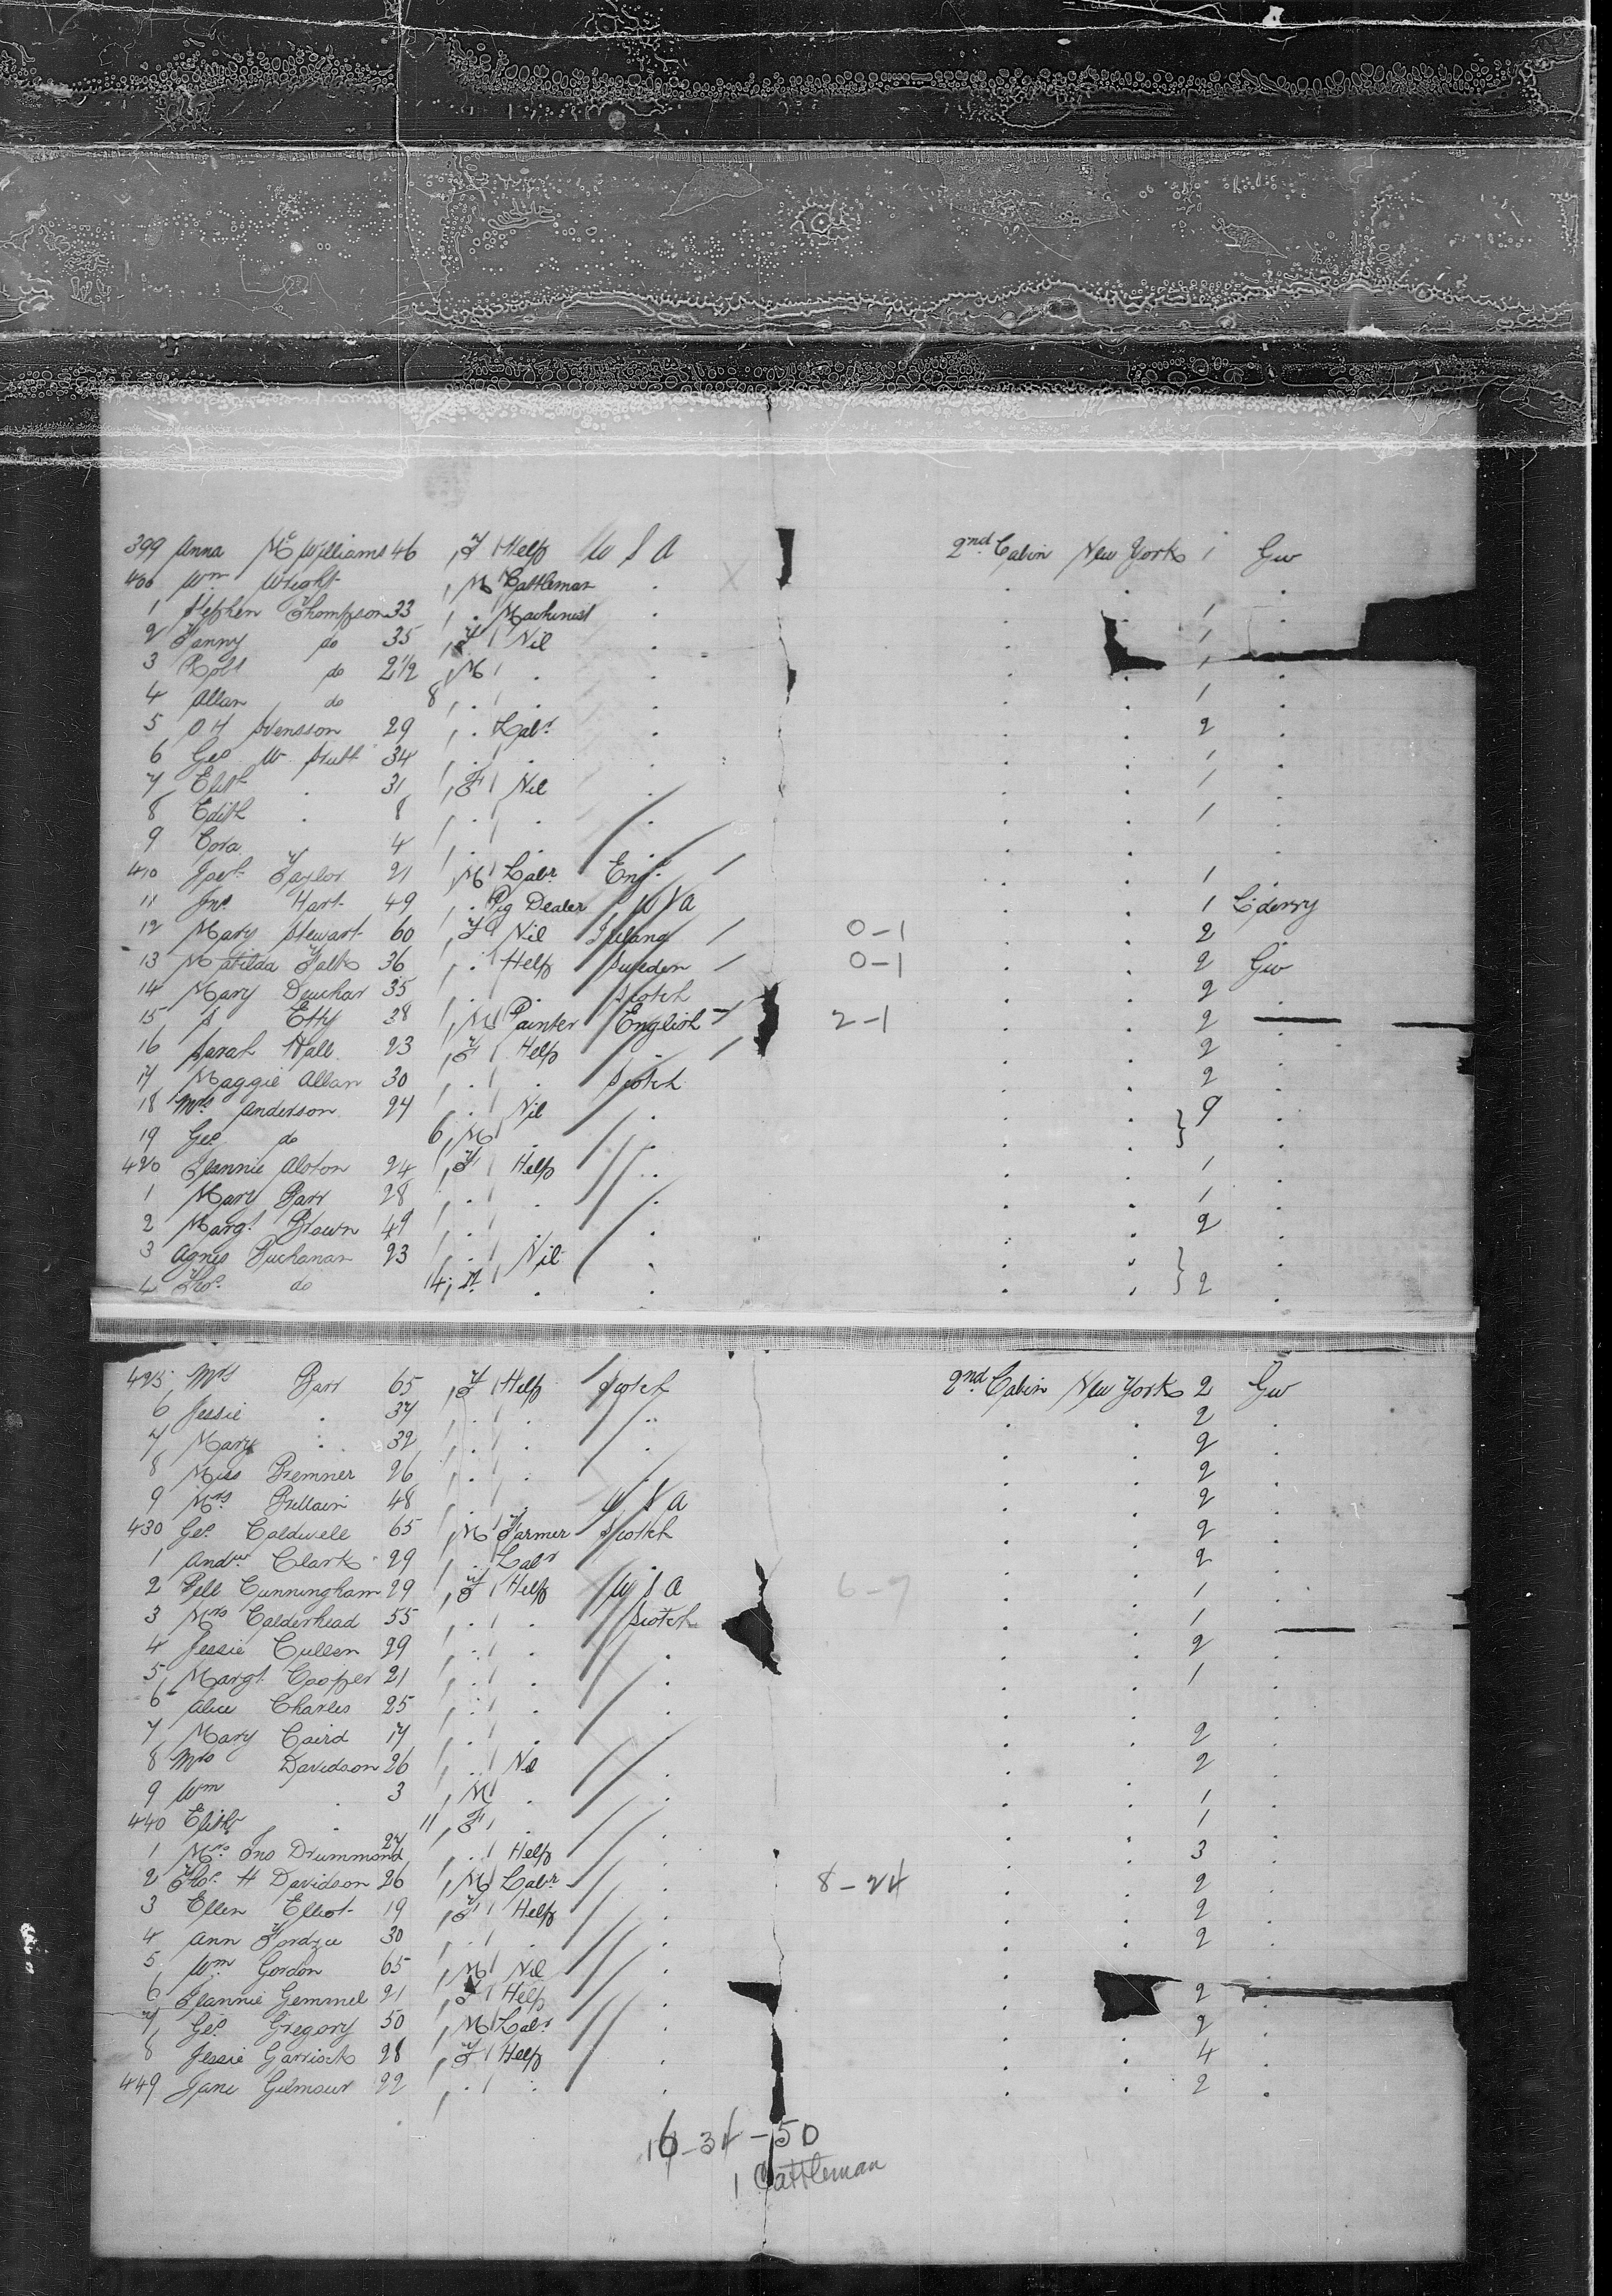 399 Anna McWilliams 46 F Help U S A 2nd Cabin New York 1 Gw
400 Wm Wright M Cattleman . X . . .
1 Stephen Thompson 33 . Machinist . . . 1 .
2 Fanny do 35 F Nil . . 1
3 Robt do 2 1/2 M . . . . 1
4 Allan do 8 . . . . . 1 .
5 O H Svensson 29 . Labr . . . 2 .
6 Geo W 34 . . . . . 1 .
7 Elizth . 31 F Nil . . . 1 .
8 Edith . 8 . . . . . 1 .
9 Cora 4 . . . . . .
410 Taylor 21 M Labr Eng. . . 1 .
11 Jno Hart 49 . Pig Dealer U S A . . 1 L'derry
12 Mary Stewart 60 F Nil Ireland 0-1 . . 2
13 Matilda Falk 36 . Help Sweden 0-1 . . 2 Gw
14 Mary Deuchar 35 . . Scotch . . 2 .
15 S Etty 38 M Painter English 2-1 . . 2
16 Sarah Hall 23 F Help . . . 2 .
17 Maggie Allan 30 . . Scotch . . 2 .
18 Mrs Anderson 24 . Nil . . . 2 .
19 Geo do 6 M . . . . .
420 Jeannie Alston 24 F Help . . . . 1 .
1 Mary Barr 28 . . . . . 1 .
2 Margt Brown 49 . . . . . 2 .
3 Agnes Buchanan 23 . Nil . . . .
4 Thos do 14 M . . . . 2 .
425 Mrs Barr 65 F Help Scotch 2nd Cabin New York 2 Gw
6 Jessie . 37 . . . . . . 2 .
7 Mary . 32 . . . . . 2 .
8 Miss Bremner 26 . . . . . 2 .
9 Mrs 48 . . U S A . . 2 .
430 Geo Caldwell 65 M Farmer Scotch . . 2 .
1 Andw Clark 29 . Labr . . . 2 .
2 Bell Cunningham 29 F Help U S A 6-7 . . 1 .
3 Mrs Calderhead 55 . . Scotch . . 1
4 Jessie Cullen 29 . . . . . 2 .
5 Margt Cooper 21 . . . . . 1 .
6 Alice Charles 25 . . . . . .
7 Mary Caird 17 . . . . . 2 .
8 Mrs Davidson 26 . Nil . . . 2 .
9 Wm . 3 M . . . . 1 .
440 Elizth . 11 F . . . . 1 .
1 Mrs Jno Drummond 27 . Help . . . 3 .
2 Thos H Davidson 26 M Labr . 8-24 . . 2 .
3 Ellen Elliot 19 F Help . . . 2 .
4 Ann Fordyce 30 . . . . . 2 .
5 Wm Gordon 65 M Nil . . . .
6 Jeannie Gemmel 21 F Help . . 2 .
7 Geo Gregory 50 M Labr . . . 2 .
8 Jessie Garriock 28 F Help . . . 4 .
449 Jane Gilmour 22 . . . . . 2 .
16-34-50
1 Cattleman